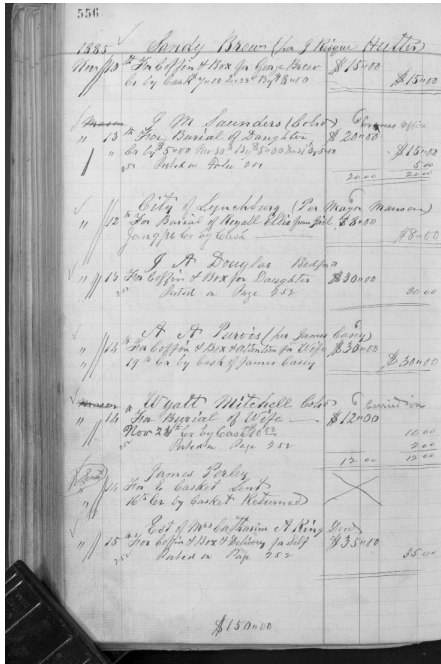 556
1885 Sandy Brew (per J Risque Hutter
Nov 10th For Coffin & Box for George Brew $15.00
Cr by Cash $15.00
J M Saunders (Cold)
" 13th For Burial of Daughter $20.00
Cr by $15.00
5.00
Posted on Folio 252 20.00 20.00
City of Lynchburg (Per Mayor Manson)
" 12th For Burial of Royall Ellis from Jail $8.00
Cr by Cash $8.00
J A Douglas Bedford
" 13 For Coffin & Box for Daughter $30.00
Posted on Page 252 30.00
A A Purvis (per James Casey)
" 14th For Coffin & Box & attention for Wife $30.00
19th Cr by Cash of James Casey $30.00
Wyatt Mitchell Cold
" 14 For Burial of Wife $12.00
Nov 28th Cr by Cash 10.00 10.00
2.00
Posted on Page 252 12.00 12.00
James Perley
" 14 For Casket Sent
16th Cr by Casket Returned
Est of Mrs Catharine A King Decd
" 15th For Coffin & Box & Delivery for Self $35.00
Posted on Page 252 35.00
$150.00